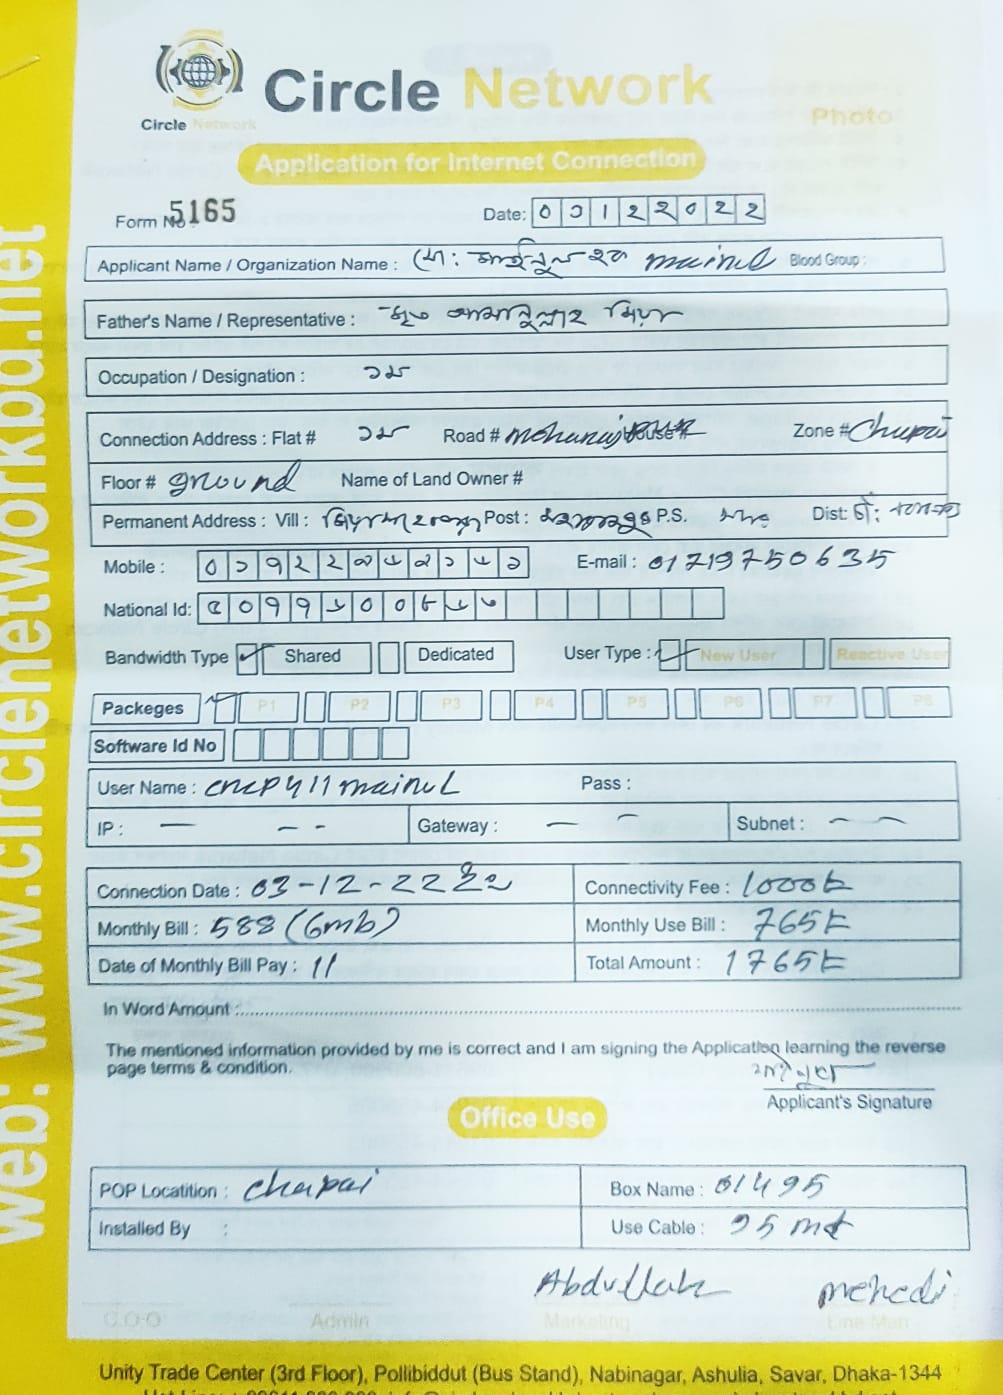 Circle Network
Circle Network
Photo
Application for Internet Connection
Form No 5165
Date: 03122022
Applicant Name / Organization Name : মো: মাইনুল হক mainul Blood Group :
Father's Name / Representative : মৃত আমানুল্লাহ মিয়া
Occupation / Designation :
Connection Address : Flat # Road # House # Zone # Chapai
Floor # ground Name of Land Owner #
Permanent Address : Vill : Post : P.S. Dist:
Mobile :
E-mail : 01719750635
National Id:
Bandwidth Type Shared Dedicated User Type : New User Reactive User
Packeges P1 P2 P3 P4 P5 P6 P7 P8
Software Id No
User Name : Pass :
IP : Gateway : Subnet :
Connection Date : 03-12-22 Connectivity Fee : 1000৳
Monthly Bill : 588 (6mb) Monthly Use Bill : 765৳
Date of Monthly Bill Pay : 11 Total Amount : 1765৳
In Word Amount :
The mentioned information provided by me is correct and I am signing the Application learning the reverse
page terms & condition.
Applicant's Signature
Office Use
POP Locatition : Chapai Box Name : 01495
Installed By : Use Cable :
Abdullah mehedi
C.O.O Admin Marketing Line Man
Unity Trade Center (3rd Floor), Pollibiddut (Bus Stand), Nabinagar, Ashulia, Savar, Dhaka-1344
web: www.circlenetworkbd.net